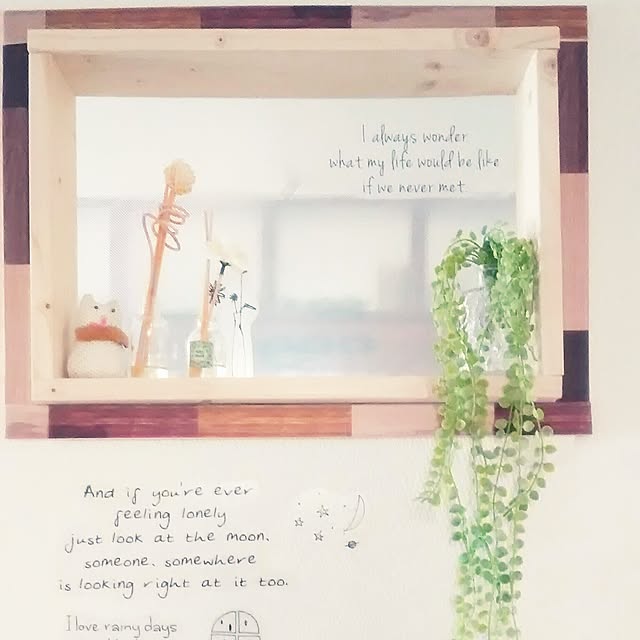 I always wonder
what my life would be like
if we never met.
And if you're ever
feeling lonely
just look at the moon.
someone. somewhere
is looking right at it too.
I love rainy days